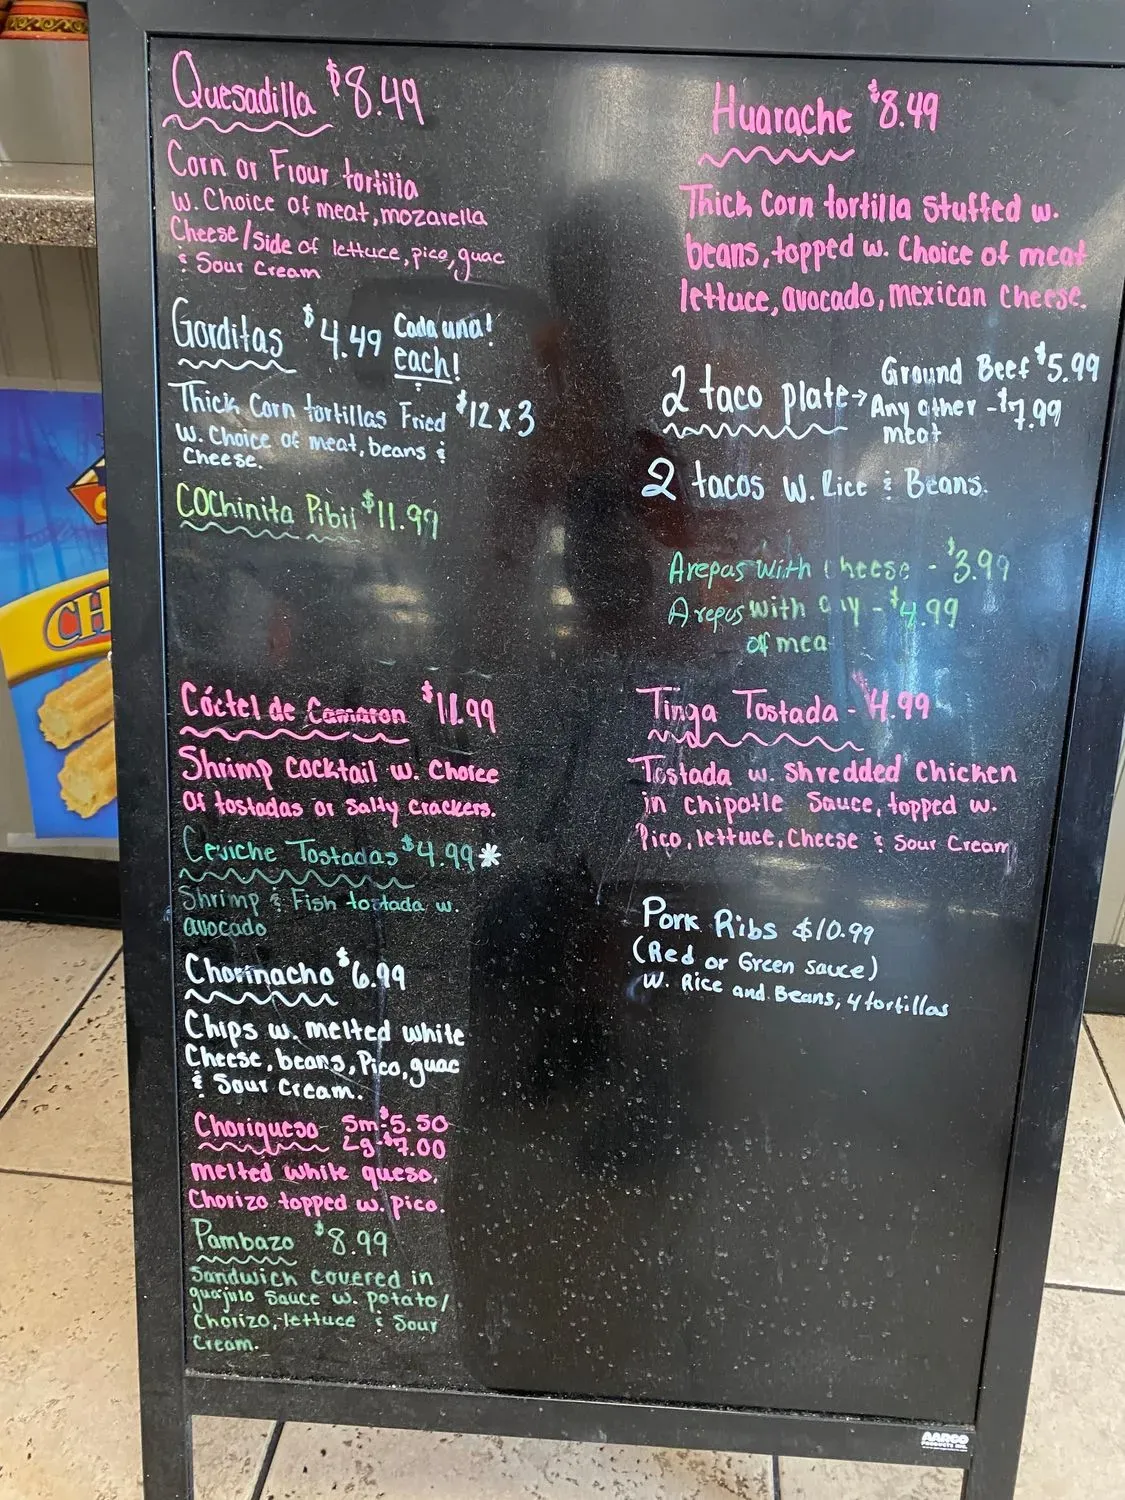 Quesadilla $8.49
Corn or Flour tortilla
w. Choice of meat, mozarella
Cheese/Side of lettuce, pico, guac
& Sour Cream
Gorditas $4.49 Cada una!
each!
Thick Corn tortillas Fried $12 x 3
w. Choice of meat, beans &
Cheese.
COChinita Pibil $11.99
Cóctel de Camaron $11.99
Shrimp Cocktail w. Choice
Of tostadas or Salty Crackers.
Ceviche Tostadas $4.99 *
Shrimp & Fish tostada w.
avocado
Chorinacho $6.99
Chips w. melted white
Cheese, beans, Pico, guac
& Sour Cream.
Choriqueso Sm-$5.50
Lg-$7.00
melted white queso,
Chorizo topped w. pico.
Pambazo $8.99
Sandwich covered in
guajillo Sauce w. potato/
Chorizo, lettuce & Sour
Cream.
Huarache $8.49
Thick Corn tortilla stuffed w.
beans, topped w. Choice of meat
lettuce, avocado, mexican Cheese.
2 taco plate → Ground Beef $5.99
Any other - $7.99
meat
2 tacos w. Rice & Beans.
Arepas with Cheese - $3.99
Arepas with any - $4.99
of mea
Tinga Tostada - $4.99
Tostada w. Shredded Chicken
in Chipotle Sauce, topped w.
Pico, lettuce, Cheese & Sour Cream
Pork Ribs $10.99
(Red or Green sauce)
w. Rice and Beans, 4 tortillas
CH
AARCO
PRODUCTS INC.